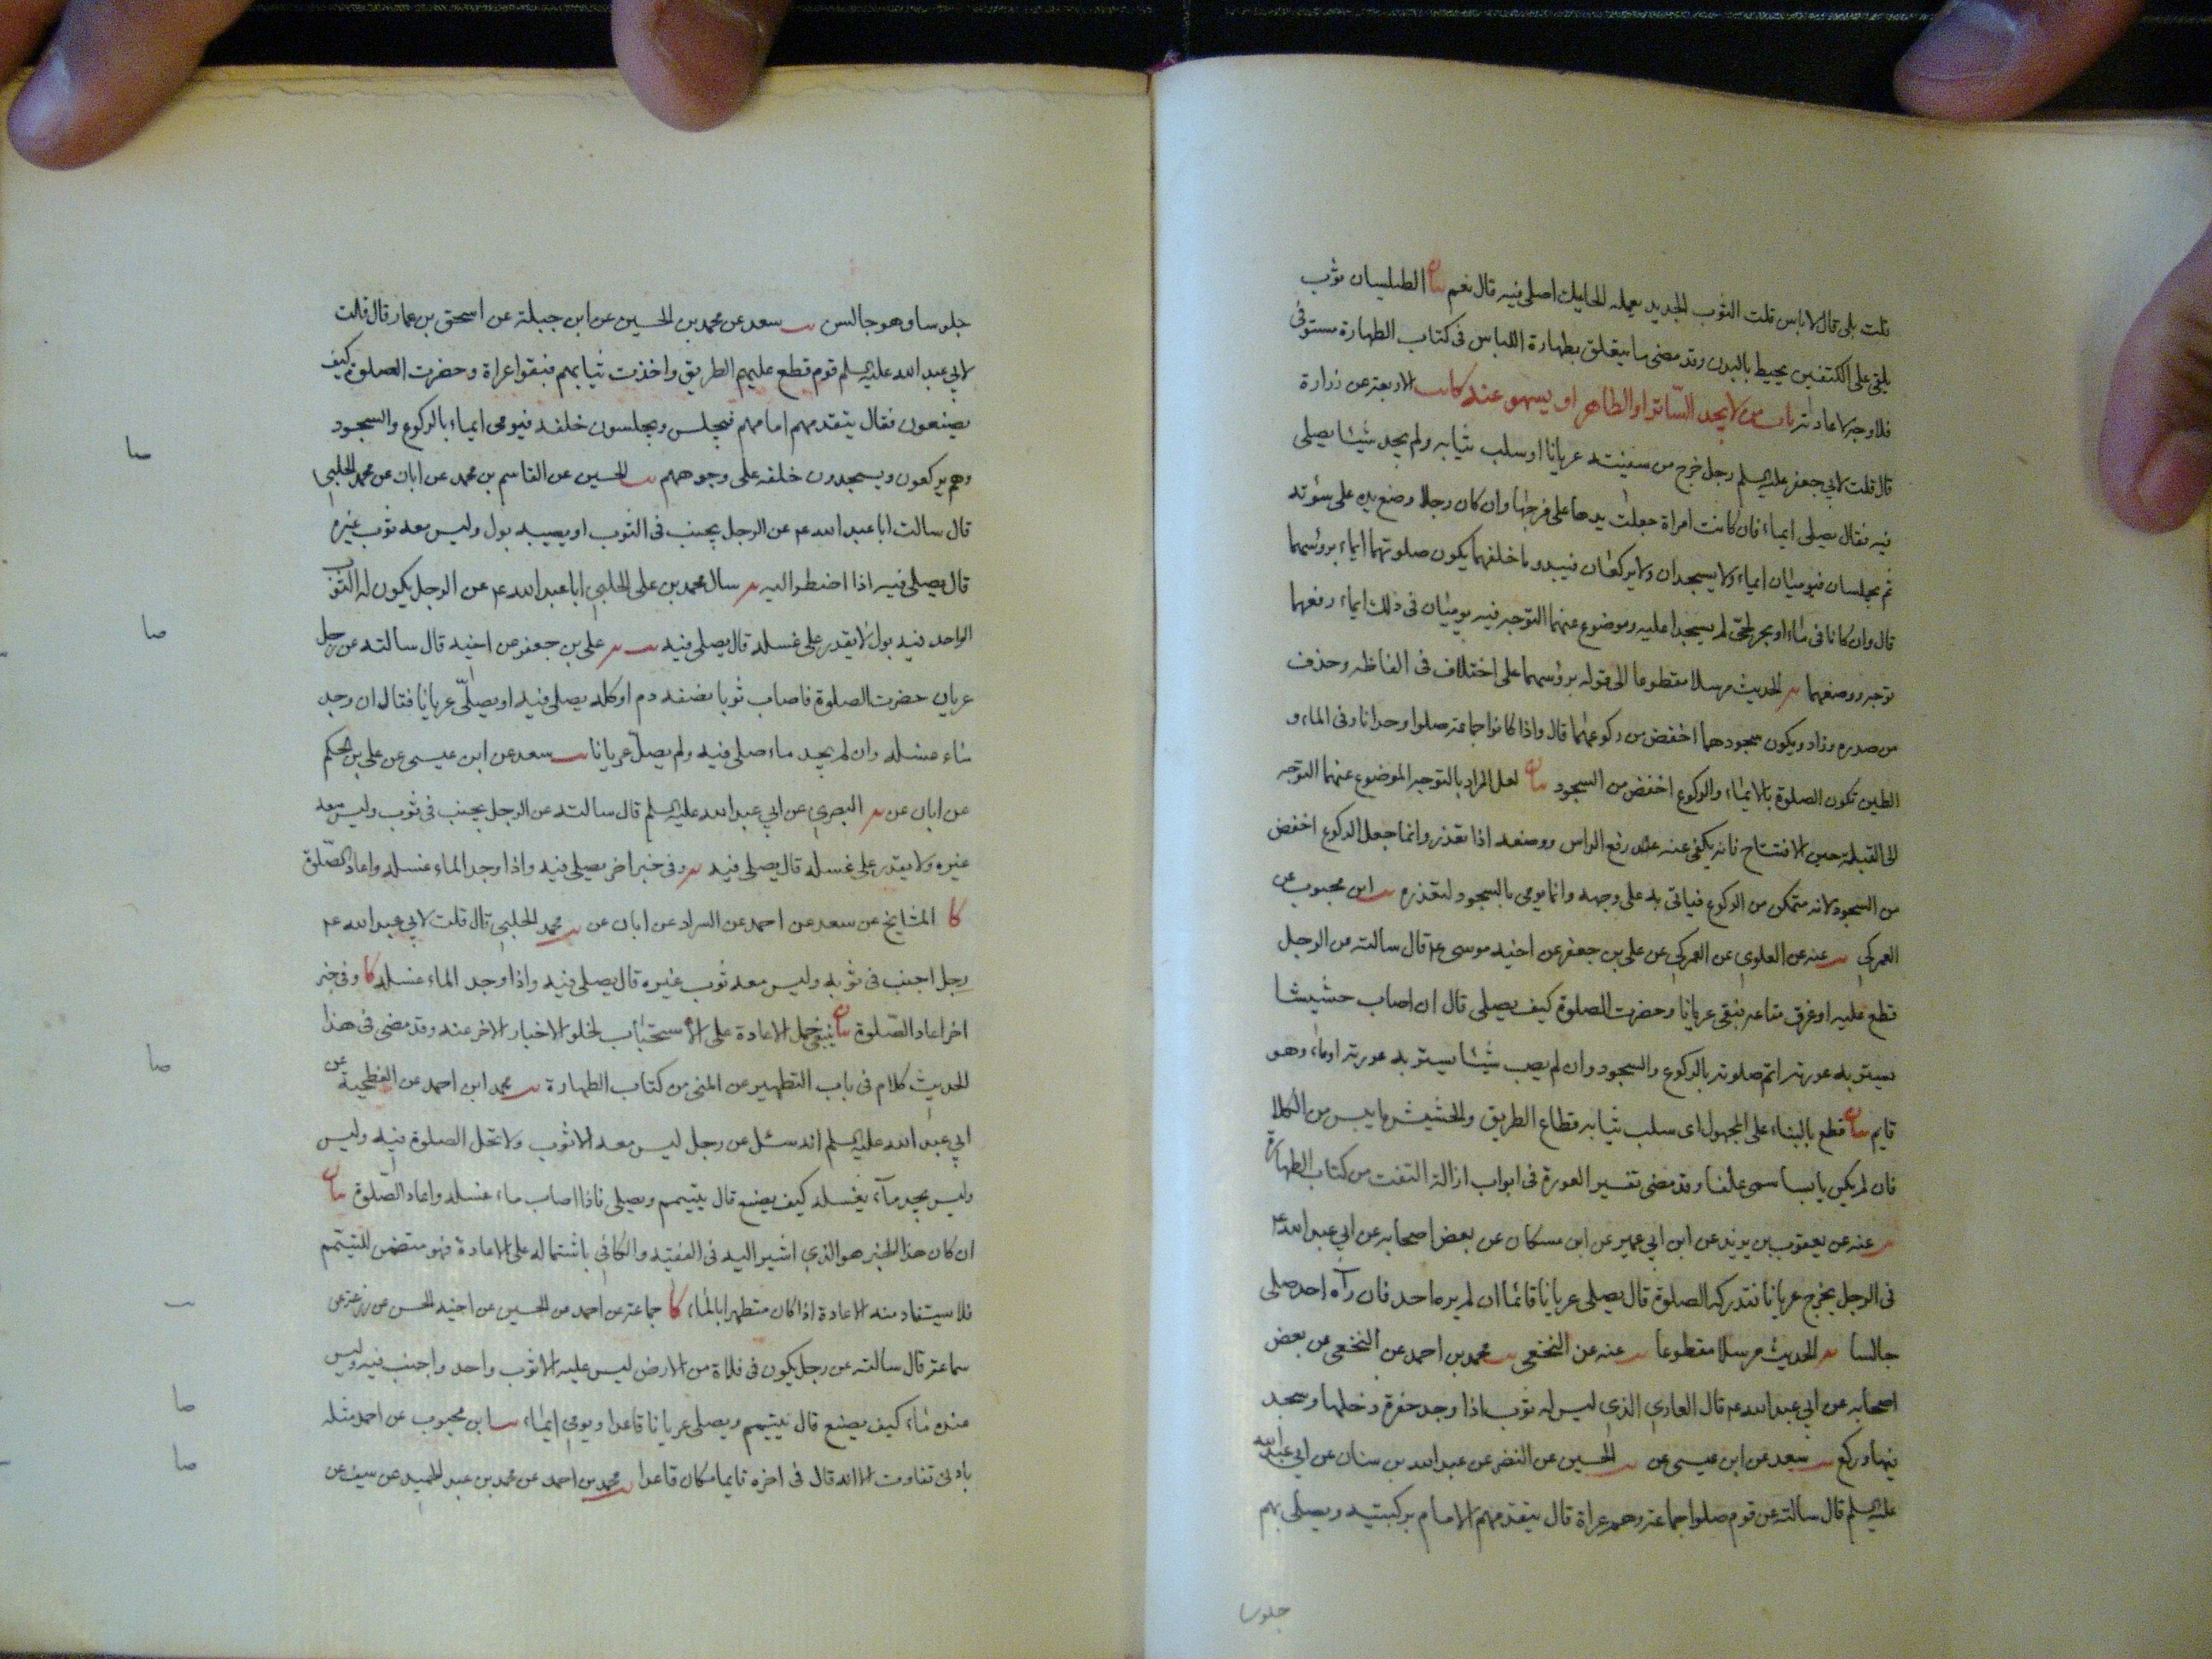 قلت بلى قال لا باس قلت الثوب الجديد يعمله الحايك اصلى فيه قال نعم بيان الطيلسان ثوب
يلقى على الكتفين يحيط بالبدن وقد مضى ما يتعلق بطهارة اللباس فى كتاب الطهارة مستوفى
فلا وجه لاعادته باب من لا يجد الساتر او الطاهر او يسهو عنه كا يب الاربعة عن زرارة
قال قلت لابي جعفر عليه السلم رجل خرج من سفينته عريانا او سلب ثيابه ولم يجد شيئا يصلى
فيه فقال يصلى ايماء فان كانت امراة جعلت يدها على فرجها وان كان رجلا وضع يده على سوئته
ثم يجلسان فيوميان ايماء ولا يسجدان ولا يركعان فيبدو ما خلفهما يكون صلوتهما ايماء برؤسهما
قال وان كانا فى ماء او بحر لجى لم يسجدا عليه وموضوع عنهما التوجه فيه يوميان فى ذلك ايماء رفعهما
توجه ووضعهما يه الحديث مرسلا مقطوعا الى قوله برؤسهما على اختلاف فى الفاظه وحذف
من صدره وزاد ويكون سجودهما اخفض من ركوعهما قال واذا كانوا جماعة صلوا وحدانا وفى الماء و
الطين تكون الصلوة بالايماء والركوع اخفض من السجود بيان لعل المراد بالتوجه الموضوع عنهما التوجه
الى القبلة حين الافتتاح فانه يكفى عنه رفع الراس ووضعه اذا تعذر وانما جعل الركوع اخفض
من السجود لانه متمكن من الركوع فياتى به على وجهه وانما يومى بالسجود لتعذره يب ابن محبوب عن
العمركي يب عنه عن العلوي عن العمركي عن علي بن جعفر عن اخيه موسى ع قال سالته عن الرجل
قطع عليه او غرق متاعه فبقى عريانا وحضرت الصلوة كيف يصلى قال ان اصاب حشيشا
يستر به عورته اتم صلوته بالركوع والسجود وان لم يصب شيئا يستر به عورته اوماء وهو
قايم بيان قطع بالبناء على المجهول اى سلب ثيابه قطاع الطريق والحشيش ما يبس من الكلا
فان لم يكن يابسا سمى علفا وقد مضى تفسير العورة فى ابواب ازالة التفث من كتاب الطهارة
يب عنه عن يعقوب بن يزيد عن ابن ابي عمير عن ابن مسكان عن بعض اصحابه عن ابي عبد الله ع
فى الرجل يخرج عريانا فتدركه الصلوة قال يصلى عريانا قائما ان لم يره احد فان رآه احد صلى
جالسا يه الحديث مرسلا مقطوعا يب عنه عن النخعى يب محمد بن احمد عن النخعى عن بعض
اصحابه عن ابي عبد الله ع قال العاري الذي ليس له ثوب اذا وجد حفرة دخلها وسجد
فيها وركع يب سعد عن ابن عيسى عن يب الحسين عن النضر عن عبد الله بن سنان عن ابي عبد الله
عليه السلم قال سالته عن قوم صلوا جماعة وهم عراة قال يتقدمهم الامام بركبتيه ويصلى بهم
جلوسا
جلوسا وهو جالس يب سعد عن محمد بن الحسين عن ابن جبلة عن اسحق بن عمار قال قلت
لابي عبد الله عليه السلم قوم قطع عليهم الطريق واخذت ثيابهم فبقوا عراة وحضرت الصلوة كيف
يصنعون فقال يتقدمهم امامهم فيجلس ويجلسون خلفه فيومى ايماء بالركوع والسجود
وهم يركعون ويسجدون خلفه على وجوههم يب الحسين عن القاسم بن محمد عن ابان عن محمد الحلبي
قال سالت ابا عبد الله ع عن الرجل يجنب فى الثوب او يصيبه بول وليس معه ثوب غيره
قال يصلى فيه اذا اضطر اليه يه سال محمد بن على الحلبي ابا عبد الله ع عن الرجل يكون له الثوب
الواحد فيه بول لا يقدر على غسله قال يصلى فيه يب يه على بن جعفر عن اخيه قال سألته عن رجل
عريان حضرت الصلوة فاصاب ثوبا نصفه دم او كله يصلى فيه او يصلّى عريانا فقال ان وجد
ماء غسله وان لم يجد ماء صلى فيه ولم يصلّ عريانا يب سعد عن ابن عيسى عن على بن الحكم
عن ابان عن يه البصري عن ابي عبد الله عليه السلم قال سالته عن الرجل يجنب فى ثوب وليس معه
غيره ولا يقدر على غسله قال يصلى فيه يه وفى خبر اخر يصلى فيه واذا وجد الماء غسله واعاد الصّلوة
كا المشايخ عن سعد عن احمد عن السراد عن ابان عن يه محمد الحلبي قال قلت لابي عبد الله ع
رجل اجنب فى ثوبه وليس معه ثوب غيره قال يصلى فيه واذا وجد الماء غسله كا وفى خبر
اخر اعاد الصّلوة بيان ينبغى حمل الاعادة على الاستحباب لخلو الاخبار الاخر عنه وقد مضى فى هذا
الحديث كلام فى باب التطهير عن المنى من كتاب الطهارة يب محمد ابن احمد عن الفطحية عن
ابي عبد الله عليه السلم انه سئل عن رجل ليس معه الا ثوب ولا تحل الصلوة فيه وليس
وليس يجد مآء يغسله كيف يصنع قال يتيمم ويصلى فاذا اصاب ماء غسله واعاد الصّلوة بيان
ان كان هذا الخبر هو الذي اشير اليه فى الفقيه والكافي باشتماله على الاعادة فهو متضمن للتيمم
فلا يستفاد منه الاعادة اذا كان متطهرا بالماء كا جماعة عن احمد عن الحسين عن اخيه الحسن عن زرعة عن
سماعة قال سالته عن رجل يكون فى فلاة من الارض ليس عليه الا ثوب واحد واجنب فيه وليس
عنده ماء كيف يصنع قال يتيمم ويصلى عريانا قاعدا ويومي ايماء يب ابن محبوب عن احمد مثله
بادنى تفاوت الا انه قال فى اخره قايما مكان قاعدا يب محمد بن احمد عن محمد بن عبد الحميد عن سيف عن
صا
صا
صا
صا
صا